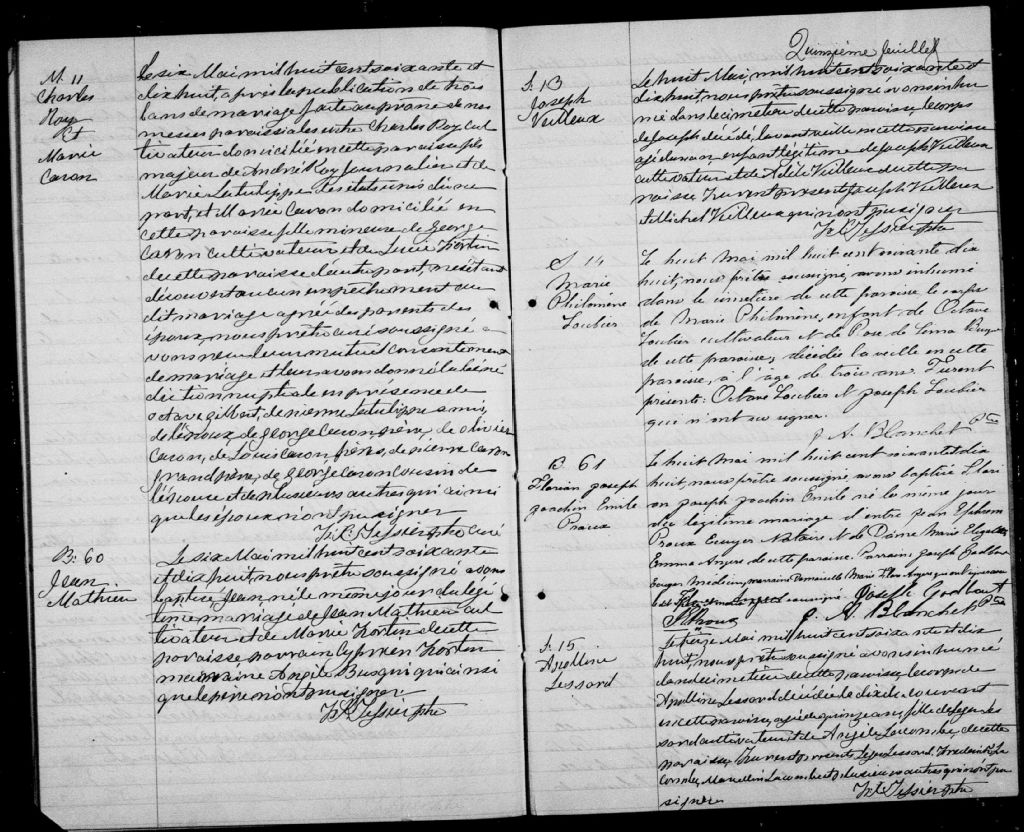 M. 11
Charles
Roy
Et
Marie
Caron
Le six Mai mil huit cent soixante et
dix huit, après la publication de trois
bans de mariage faite au prone de nos
messes paroissiales entre Charles Roy cul
tivateur domicilié en cette paroisse fils
majeur de André Roy Journalier et de
Marie Latulippe des états unis d'une
part, et Marie Caron domicilié en
cette paroisse fille mineure de George
Caron cultivateur et de Lucie Fortin
de cette paroisse d'autre part, ne s'étant
découvert aucun empêchement au
dit mariage après des parents des
époux, nous prêtre curé soussigné a
vons reçu leur mutuel consentement
de mariage et leur avons donné la béné
diction nuptiale en présence de
octave gilbert de pierre Latulippe amis,
de l'époux, de george Caron, père, de olivier
Caron, de Louis Caron, frères, de pierre Caron
grand père, de George Caron cousin de
l'épouse et de plusieurs autres qui ainsi
que les époux n'ont pu signer
Tessier ptre curé
B. 60
Jean
Mathieu
Le six Mai mil huit cent soixante
et dix huit, nous prêtre soussigné avons
baptisé Jean né le même jour du légi
time mariage de Jean Mathieu cul
tivateur et de Marie Fortin de cette
paroisse parrain Cyprien Fortin
marraine Angèle Busqu qui ainsi
que le père n'ont pu signer.
Tessier ptre
Quinzième feuillet
S. 13
Joseph
Veilleux
Le huit Mai, mil huit cent soixante et
dix huit, nous prêtre soussigné avons inhu
mé dans le cimetière de cette paroisse, le corps
de Joseph décédé, l'avant veille en cette paroisse
agé d'un an enfant légitime de Joseph Veilleux
cultivateur et de Adèle Veilleux de cette pa
roisse. Furent présent Joseph Veilleux
et Michel Veilleux qui n'ont pu signer
Tessier ptre
S. 14
Marie
Philomène
Loubier
Le huit mai mil huit cent soixante dix
huit, nous prêtre soussigné, avons inhumé
dans le cimetière de cette paroisse le corps
de Marie Philomène, enfant de Octave
Loubier cultivateur et de Rose de Lima
de cette paroisse; décédée la veille en cette
paroisse, à l'age de trois ans. Furent
présents: Octave Loubier et Joseph Loubier
qui n'ont su signer.
J. A. Blanchet Ptre
B 61
Florian Joseph
Joachin Emile
Proux
Le huit mai mil huit cent soixante et dix
huit, nous prêtre soussigné, avons baptisé Flori
an Joseph Joachin Emile né le même jour
du légitime mariage d'entre Jean Ephrem
Proux Ecuyer Notaire et de Dame Marie Elizabeth
Emma Angers de cette paroisse. Parrain Joseph Godbout
Ecuyer Médecin, marraine Demoiselle Marie Flore Angers
soussigné Joseph Godbout
Proux J. A. Blanchet Ptre
S. 15
Apolline
Lessard
Le treize Mai mil huit cent soixante et dix
huit, nous prêtre soussigné avons inhumé
dans le cimetière de cette paroisse, le corps de
Apolline Lessard décédée le dix du courant
en cette paroisse, agée de quinze ans, fille de Léger Les
sard cultivateur et de Angèle Lacombe, de cette
paroisse, Furent présents Léger Lessard, Frederick La
combe, Marcellin Lacombe et plusieurs autres qui n'ont pu
signer. Tessier ptre